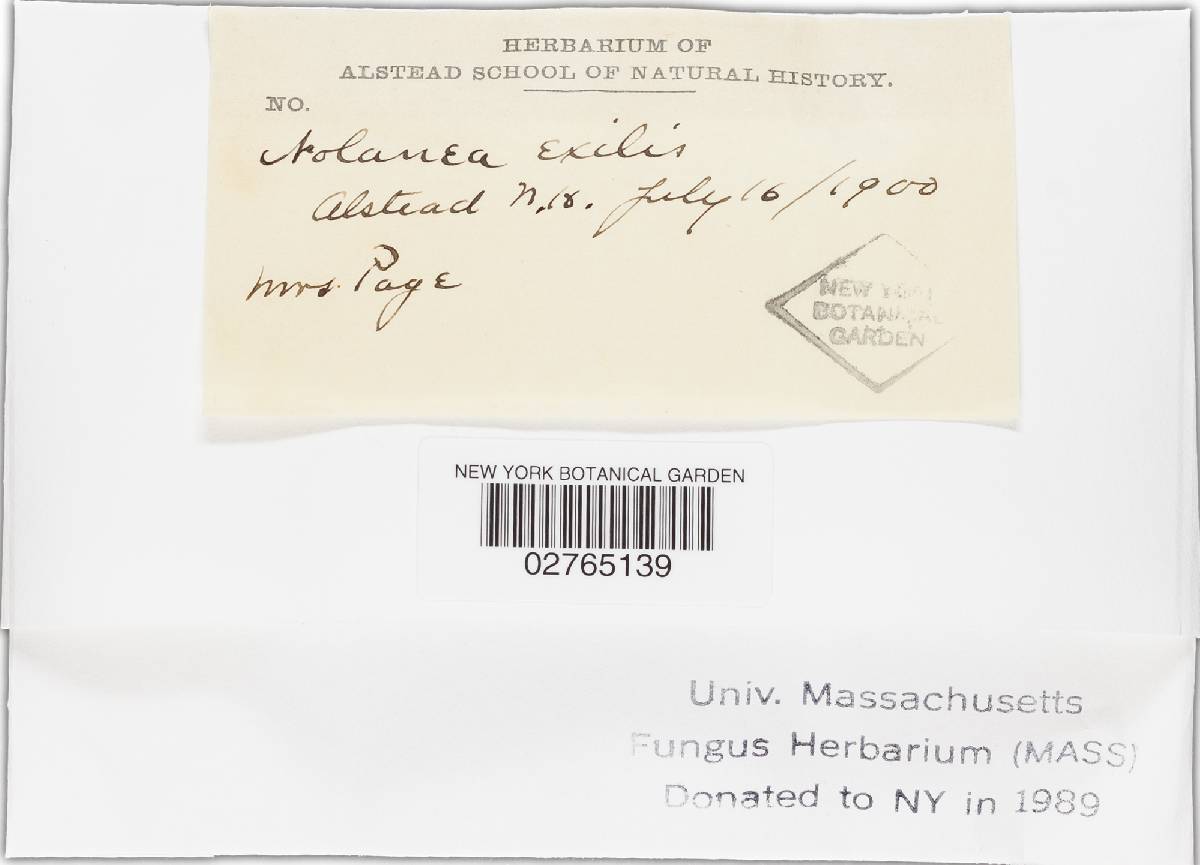 HERBARIUM OF
ALSTEAD SCHOOL OF NATURAL HISTORY.
NO.
Nolanea exilis
Alstead N.H. July 16/1900
Mrs. Page
NEW YORK
BOTANICAL
GARDEN
NEW YORK BOTANICAL GARDEN
02765139
Univ. Massachusetts
Fungus Herbarium (MASS)
Donated to NY in 1989